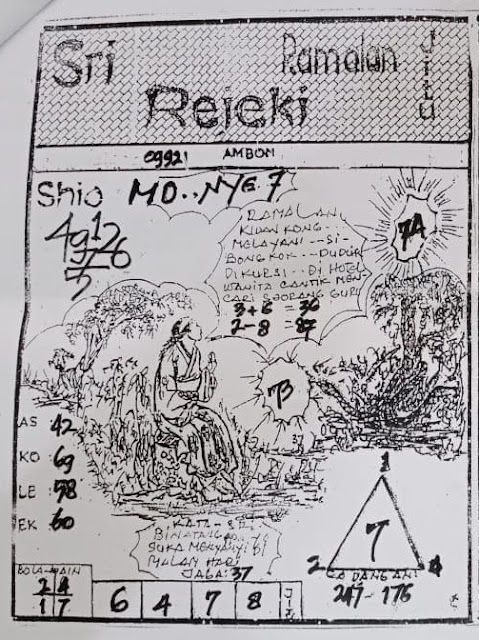 Sri
Ramalan
JITU
Rejeki
AMBON
Shio MO..NYE.7
RAMALAN
KWAN KONG...
MELAYANI -- SI-
BONGKOK -- DUDUK
DI KURSI .. DI HOTEL
WANITA CANTIK MEN-
CARI SEORANG GURU
3+6 = 36
2-8 = 87
7A
7B
AS 42
KO 69
LE 58
EK 60
KATA - SDR
BINATANG YG
SUKA MENYANYI DI
MALAM HARI
JAGA: 37
1
7
2 4
CADANGAN
247 - 176
BOLA-MAIN
2 4
1 7
6 4 7 8